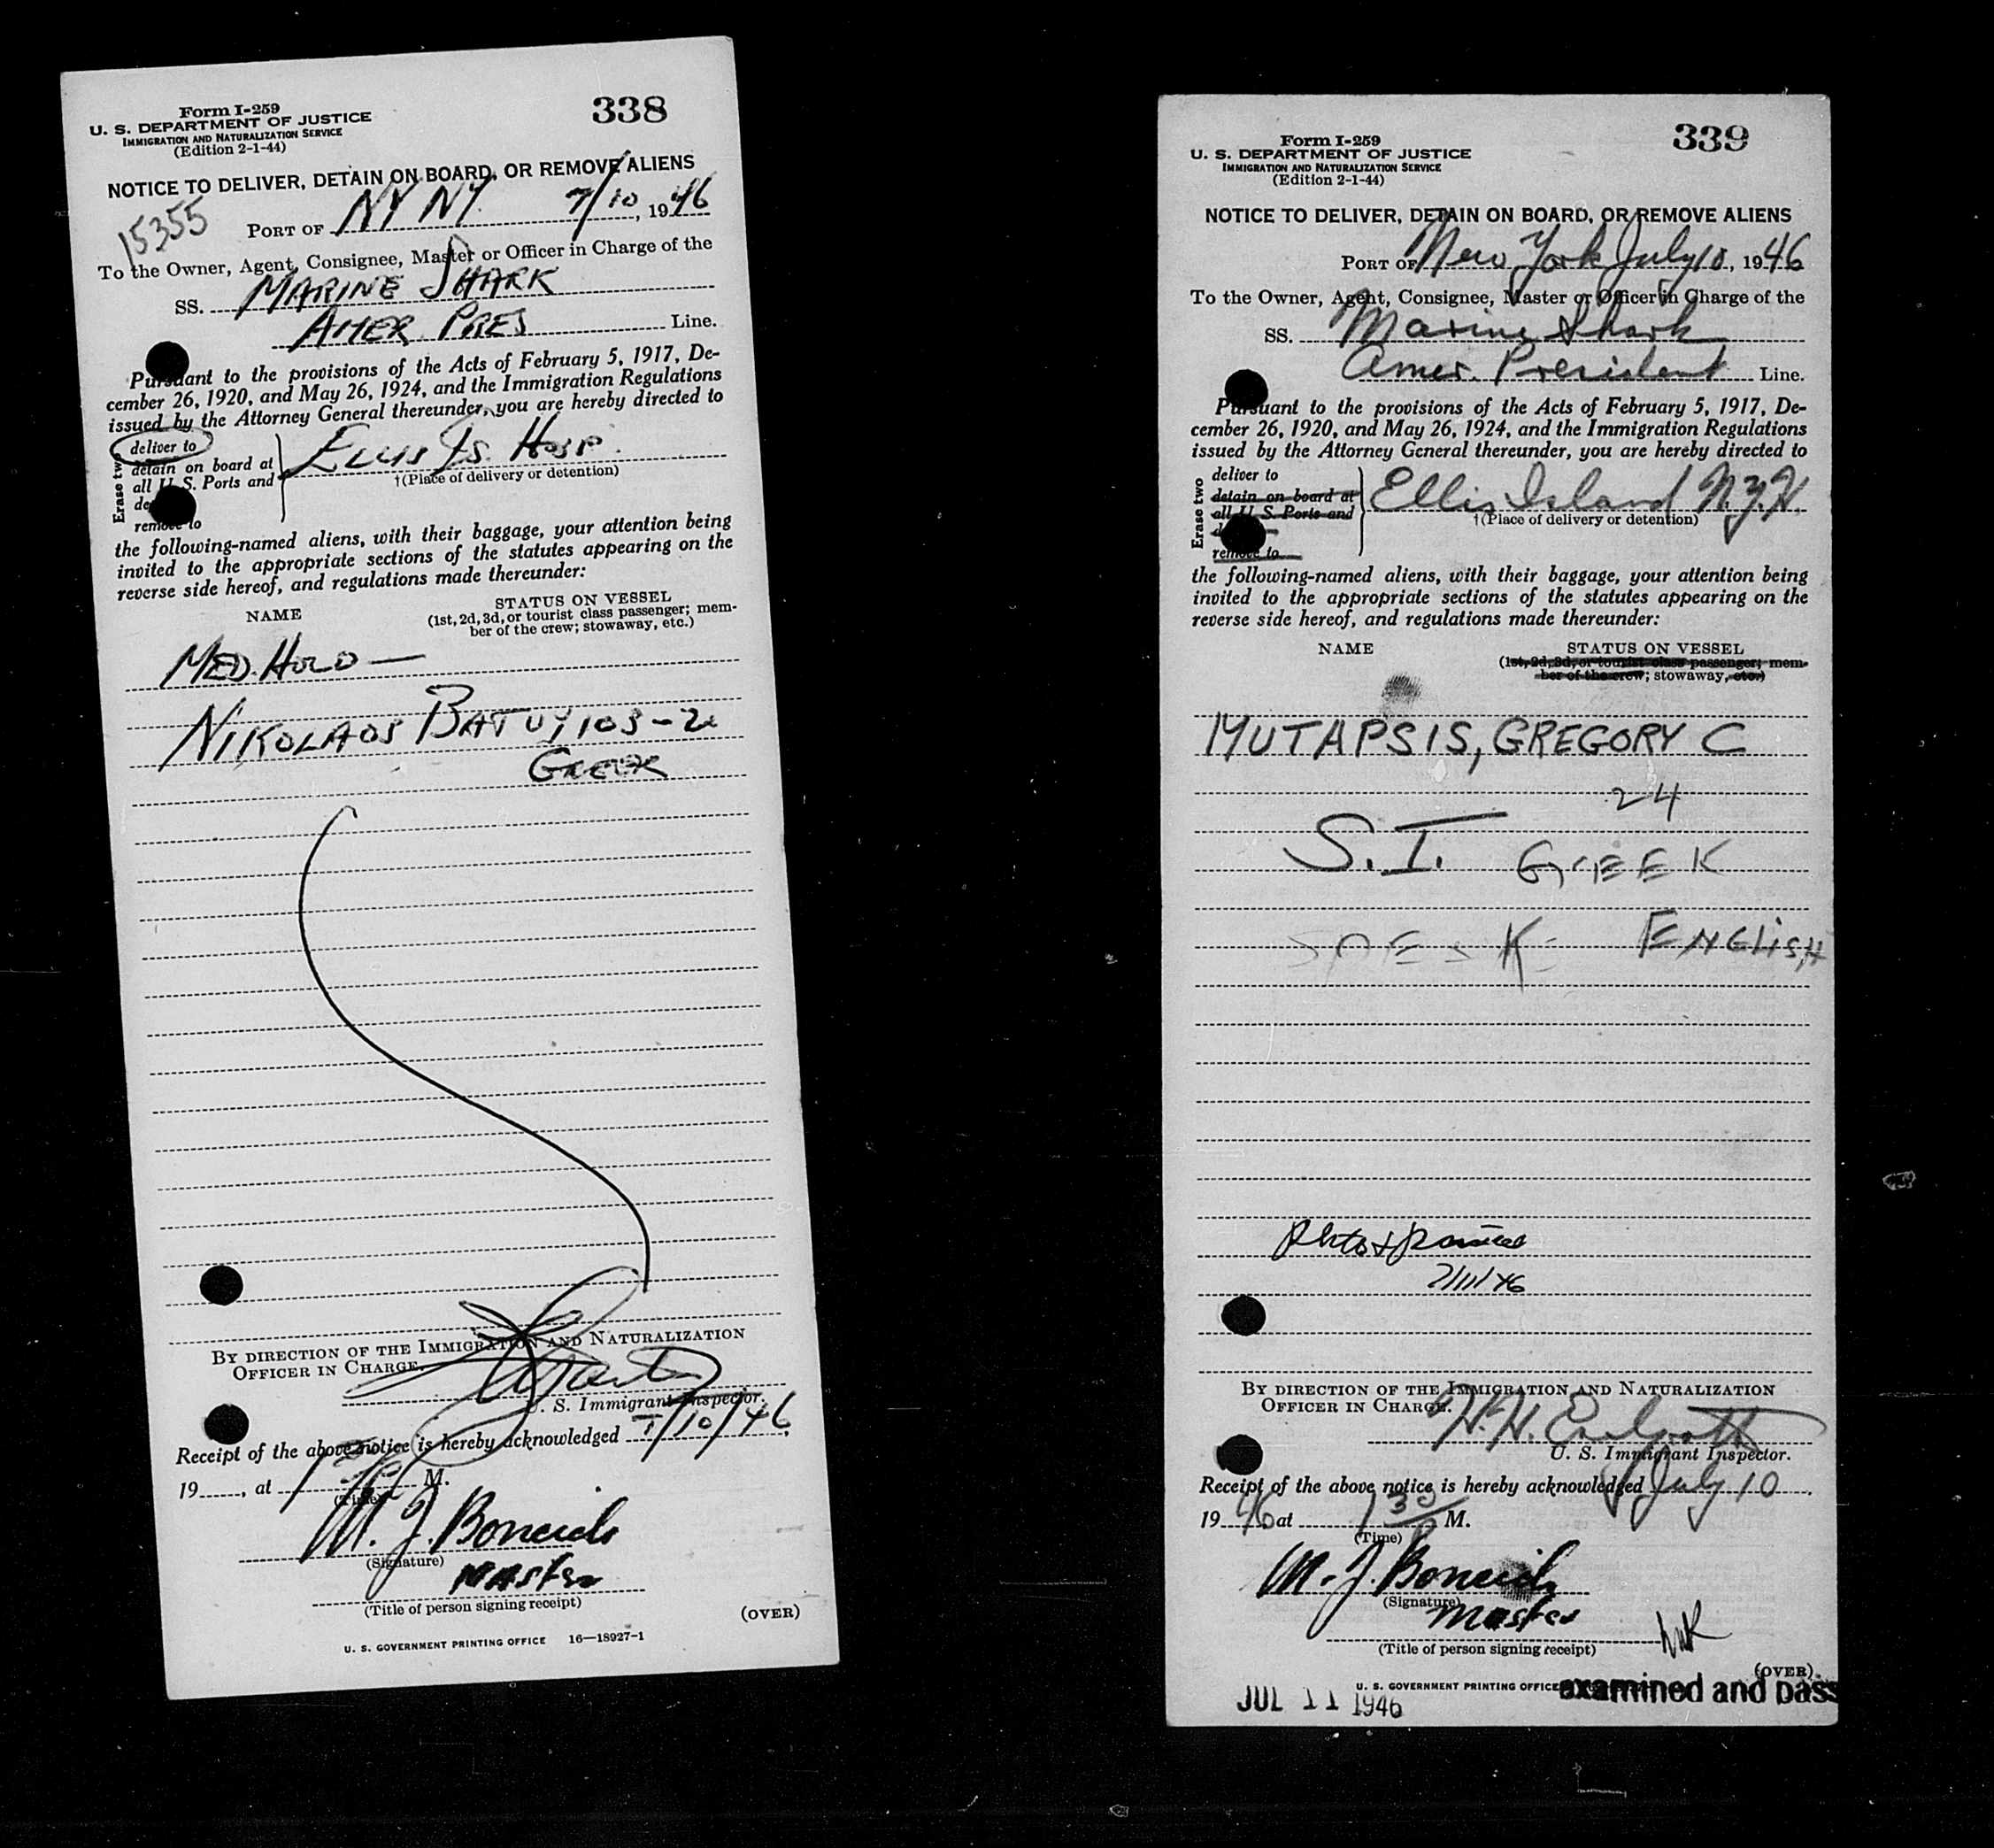 338
Form I-259
U. S. DEPARTMENT OF JUSTICE
IMMIGRATION AND NATURALIZATION SERVICE
(Edition 2-1-44)
NOTICE TO DELIVER, DETAIN ON BOARD, OR REMOVE ALIENS
15355
PORT OF NY NY 7/10, 1946
To the Owner, Agent, Consignee, Master or Officer in Charge of the
SS. MARINE SHARK
AMER PRES Line.
Pursuant to the provisions of the Acts of February 5, 1917, De-
cember 26, 1920, and May 26, 1924, and the Immigration Regulations
issued by the Attorney General thereunder, you are hereby directed to
Erase two
deliver to
detain on board at
all U. S. Ports and
remove to
ELLIS IS. HOSP.
†(Place of delivery or detention)
the following-named aliens, with their baggage, your attention being
invited to the appropriate sections of the statutes appearing on the
reverse side hereof, and regulations made thereunder:
NAME
STATUS ON VESSEL
(1st, 2d, 3d, or tourist class passenger; mem-
ber of the crew; stowaway, etc.)
MED. HOLD —
NIKOLAOS
GREEK
BY DIRECTION OF THE IMMIGRATION AND NATURALIZATION
OFFICER IN CHARGE.
U. S. Immigrant Inspector.
Receipt of the above notice is hereby acknowledged 7/10/46,
19____, at M.
(Time)
M. J.
(Signature)
Master
(Title of person signing receipt)
(OVER)
U. S. GOVERNMENT PRINTING OFFICE 16—18927-1
339
Form I-259
U. S. DEPARTMENT OF JUSTICE
IMMIGRATION AND NATURALIZATION SERVICE
(Edition 2-1-44)
NOTICE TO DELIVER, DETAIN ON BOARD, OR REMOVE ALIENS
PORT OF New York July 10, 1946
To the Owner, Agent, Consignee, Master or Officer in Charge of the
SS. Marine Shark
Amer. President Line.
Pursuant to the provisions of the Acts of February 5, 1917, De-
cember 26, 1920, and May 26, 1924, and the Immigration Regulations
issued by the Attorney General thereunder, you are hereby directed to
Erase two
deliver to
detain on board at
all U. S. Ports and
remove to
Ellis Island N.Y.H.
†(Place of delivery or detention)
the following-named aliens, with their baggage, your attention being
invited to the appropriate sections of the statutes appearing on the
reverse side hereof, and regulations made thereunder:
NAME
STATUS ON VESSEL
(1st, 2d, 3d, or tourist class passenger; mem-
ber of the crew; stowaway, etc.)
MUTAPSIS, GREGORY C
24
S.I. GREEK
ENGLISH
7/11/46
BY DIRECTION OF THE IMMIGRATION AND NATURALIZATION
OFFICER IN CHARGE.
U. S. Immigrant Inspector.
Receipt of the above notice is hereby acknowledged July 10,
1946 at 1 30 P M.
(Time)
M. J.
(Signature)
Master
(Title of person signing receipt)
(OVER)
U. S. GOVERNMENT PRINTING OFFICE
examined and pass
JUL 11 1946